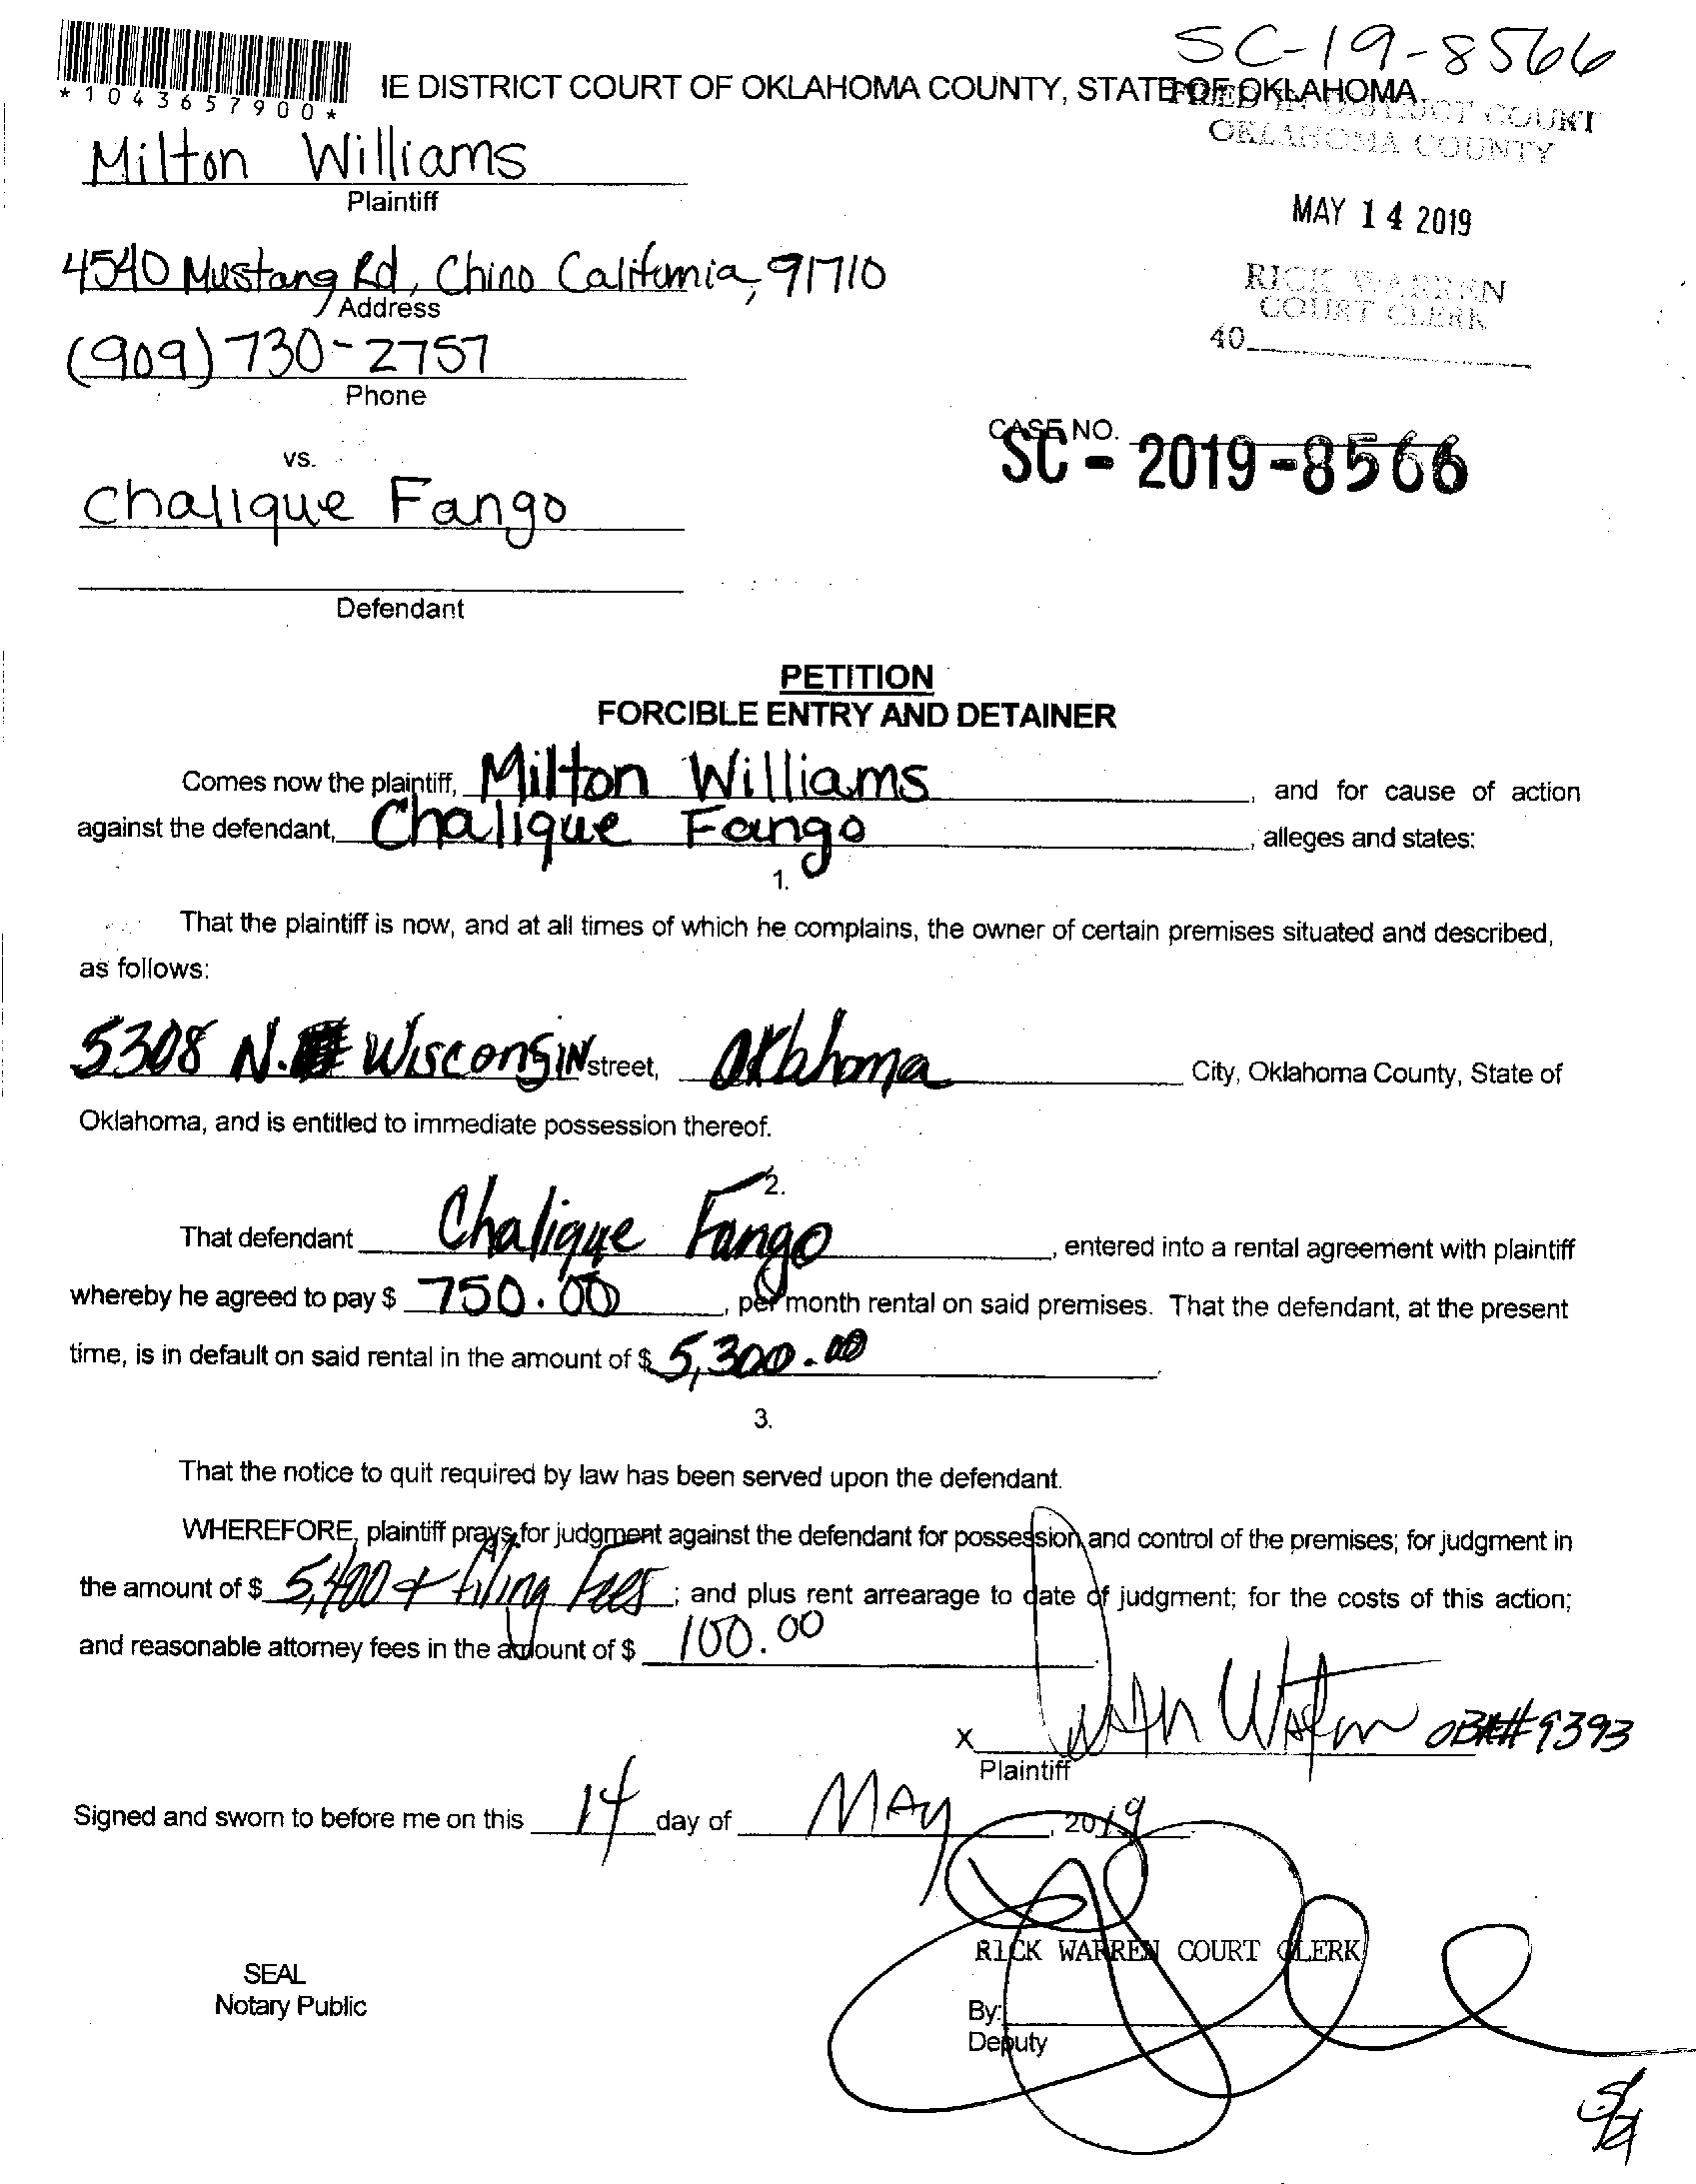 SC-19-8566
*1043657900*
IE DISTRICT COURT OF OKLAHOMA COUNTY, STATE OF OKLAHOMA
FILED IN DISTRICT COURT
OKLAHOMA COUNTY
Milton Williams
Plaintiff
MAY 14 2019
4540 Mustang Rd, Chino California, 91710
Address
RICK WARREN
COURT CLERK
40
(909) 730-2757
Phone
CASE NO.
SC - 2019 - 8566
vs.
Chalique Fango
Defendant
PETITION
FORCIBLE ENTRY AND DETAINER
Comes now the plaintiff, Milton Williams, and for cause of action
against the defendant, Chalique Fango, alleges and states:
1.
That the plaintiff is now, and at all times of which he complains, the owner of certain premises situated and described,
as follows:
5308 N. Wisconsin street, Oklahoma City, Oklahoma County, State of
Oklahoma, and is entitled to immediate possession thereof.
2.
That defendant Chalique Fango, entered into a rental agreement with plaintiff
whereby he agreed to pay $ 750.00, per month rental on said premises. That the defendant, at the present
time, is in default on said rental in the amount of $ 5,300.00.
3.
That the notice to quit required by law has been served upon the defendant.
WHEREFORE, plaintiff prays for judgment against the defendant for possession and control of the premises; for judgment in
the amount of $ 5,400 + filing Fees; and plus rent arrearage to date of judgment; for the costs of this action;
and reasonable attorney fees in the amount of $ 100.00
X OBA# 9393
Plaintiff
Signed and sworn to before me on this 14 day of May, 2019
RICK WARREN COURT CLERK
SEAL
Notary Public
By:
Deputy